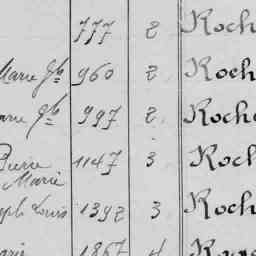 777 2 Roch
Marie 960 2 Roch
997 2 Roch
Pierre Marie 1147 3 Roch
Louis 1392 3 Roch
1867 4